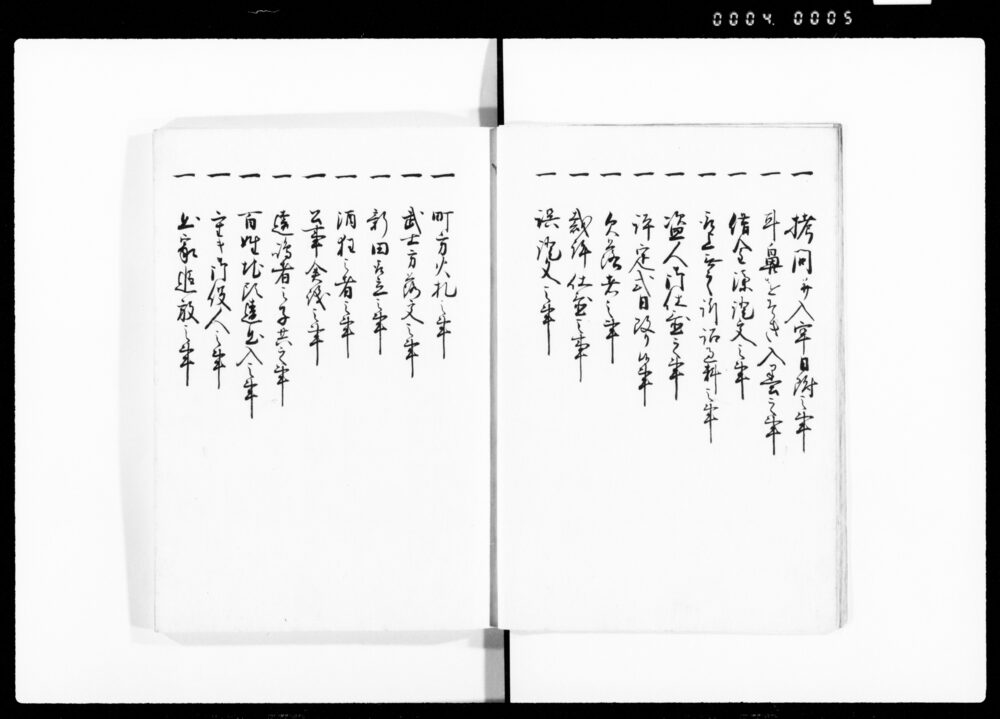 0004. 0005
一 拷問并入牢日附之事
一 耳鼻をそき入墨之事
一 借金済証文之事
一 訴詔過料之事
一 盗人御仕置之事
一 評定式日改り候事
一 欠落者之事
一 裁許仕置之事
一 誤証文之事
一 町方火札之事
一 武士方落文之事
一 新田取立之事
一 酒狂之者之事
一 公事会後之事
一 遠嶋者之子共之事
一 百姓地頭違出入之事
一 重キ御役人之事
一 出家追放之事